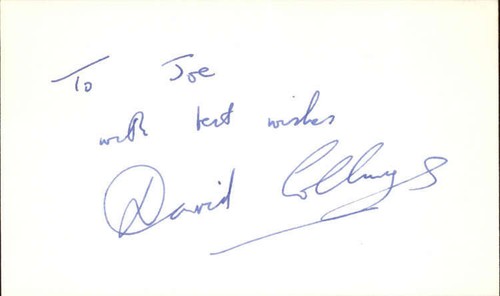 To Joe
with best wishes
David Collings